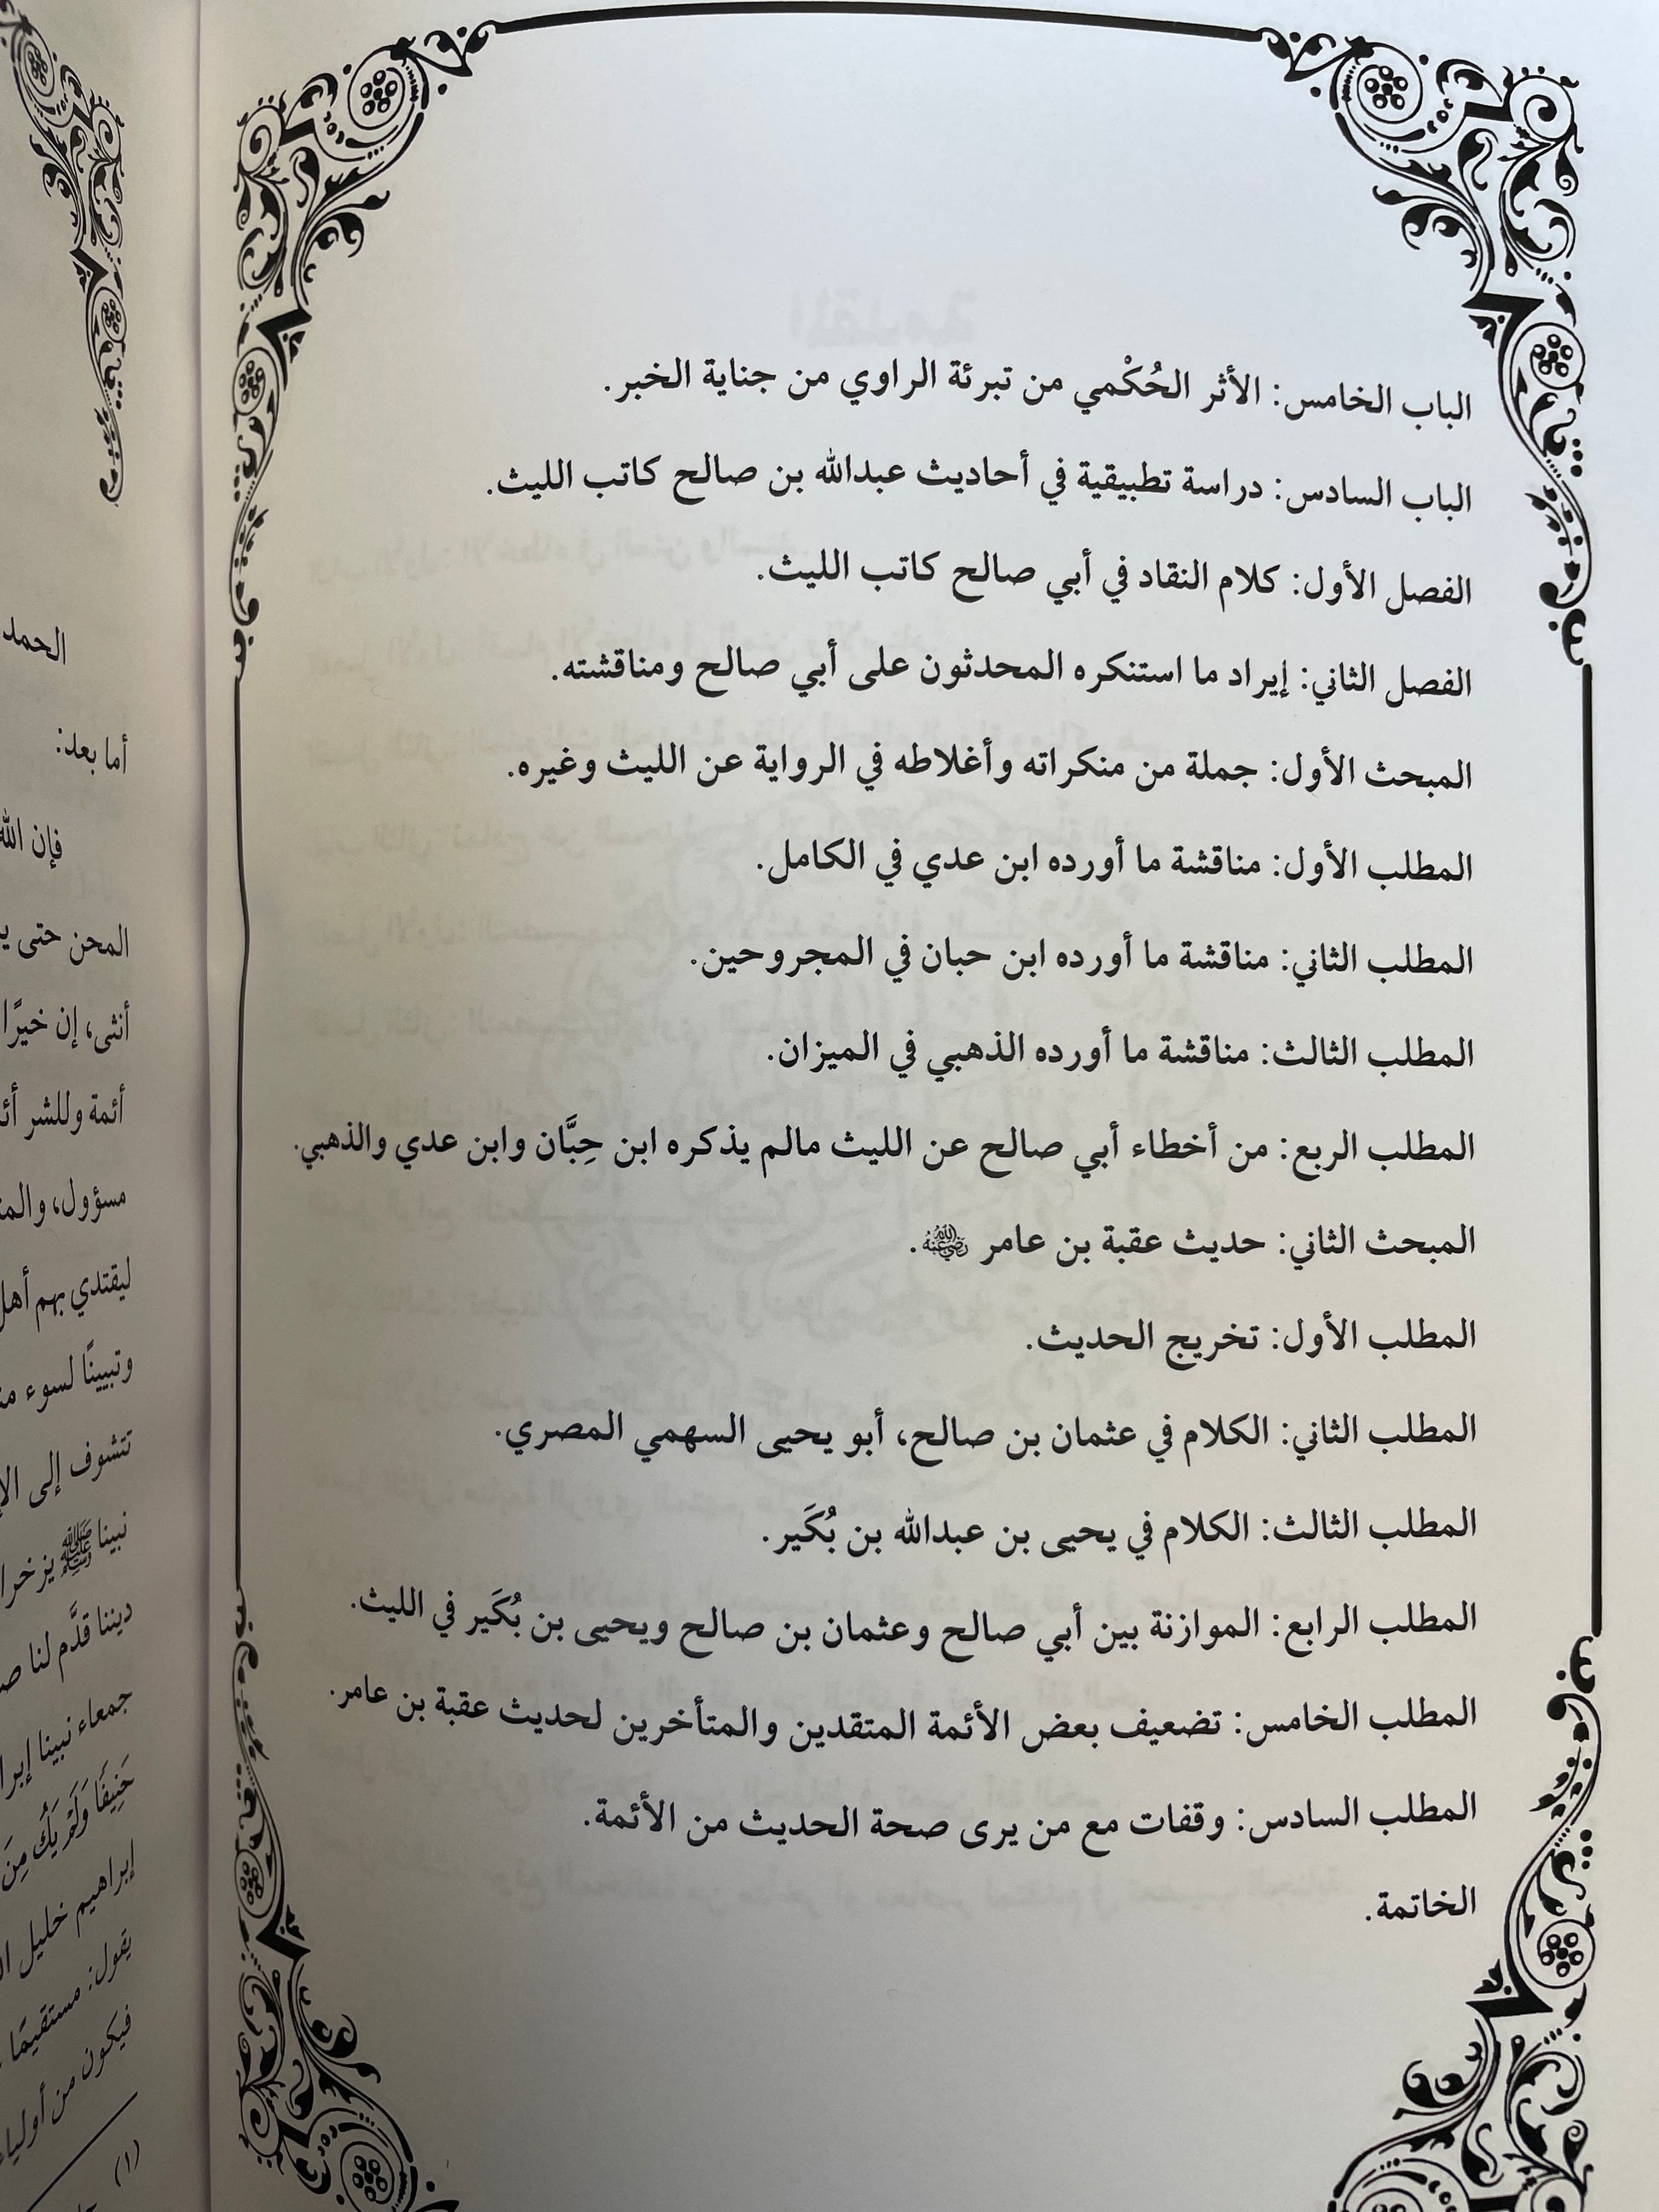 الباب الخامس: الأثر الحُكْمي من تبرئة الراوي من جناية الخبر.
الباب السادس: دراسة تطبيقية في أحاديث عبدالله بن صالح كاتب الليث.
الفصل الأول: كلام النقاد في أبي صالح كاتب الليث.
الفصل الثاني: إيراد ما استنكره المحدثون على أبي صالح ومناقشته.
المبحث الأول: جملة من منكراته وأغلاطه في الرواية عن الليث وغيره.
المطلب الأول: مناقشة ما أورده ابن عدي في الكامل.
المطلب الثاني: مناقشة ما أورده ابن حبان في المجروحين.
المطلب الثالث: مناقشة ما أورده الذهبي في الميزان.
المطلب الربع: من أخطاء أبي صالح عن الليث مالم يذكره ابن حِبَّان وابن عدي والذهبي.
المبحث الثاني: حديث عقبة بن عامر رضي الله عنه.
المطلب الأول: تخريج الحديث.
المطلب الثاني: الكلام في عثمان بن صالح، أبو يحيى السهمي المصري.
المطلب الثالث: الكلام في يحيى بن عبدالله بن بُكَير.
المطلب الرابع: الموازنة بين أبي صالح وعثمان بن صالح ويحيى بن بُكَير في الليث.
المطلب الخامس: تضعيف بعض الأئمة المتقدين والمتأخرين لحديث عقبة بن عامر.
المطلب السادس: وقفات مع من يرى صحة الحديث من الأئمة.
الخاتمة.
الحمد
أما بعد:
فإن الله
المحن حتى
أنثى، إن خيرًا
أئمة وللشر
مسؤول،
ليقتدي بهم أهل
وتبيينًا لسوء
تتشوف إلى
نبينا ﷺ يزخر
ديننا قدَّم لنا
جمعاء نبينا
حَنِيفًا وَلَمْ يَكُ مِنَ
إبراهيم خليل
يقول: مستقيمًا
فيكون من
(١)